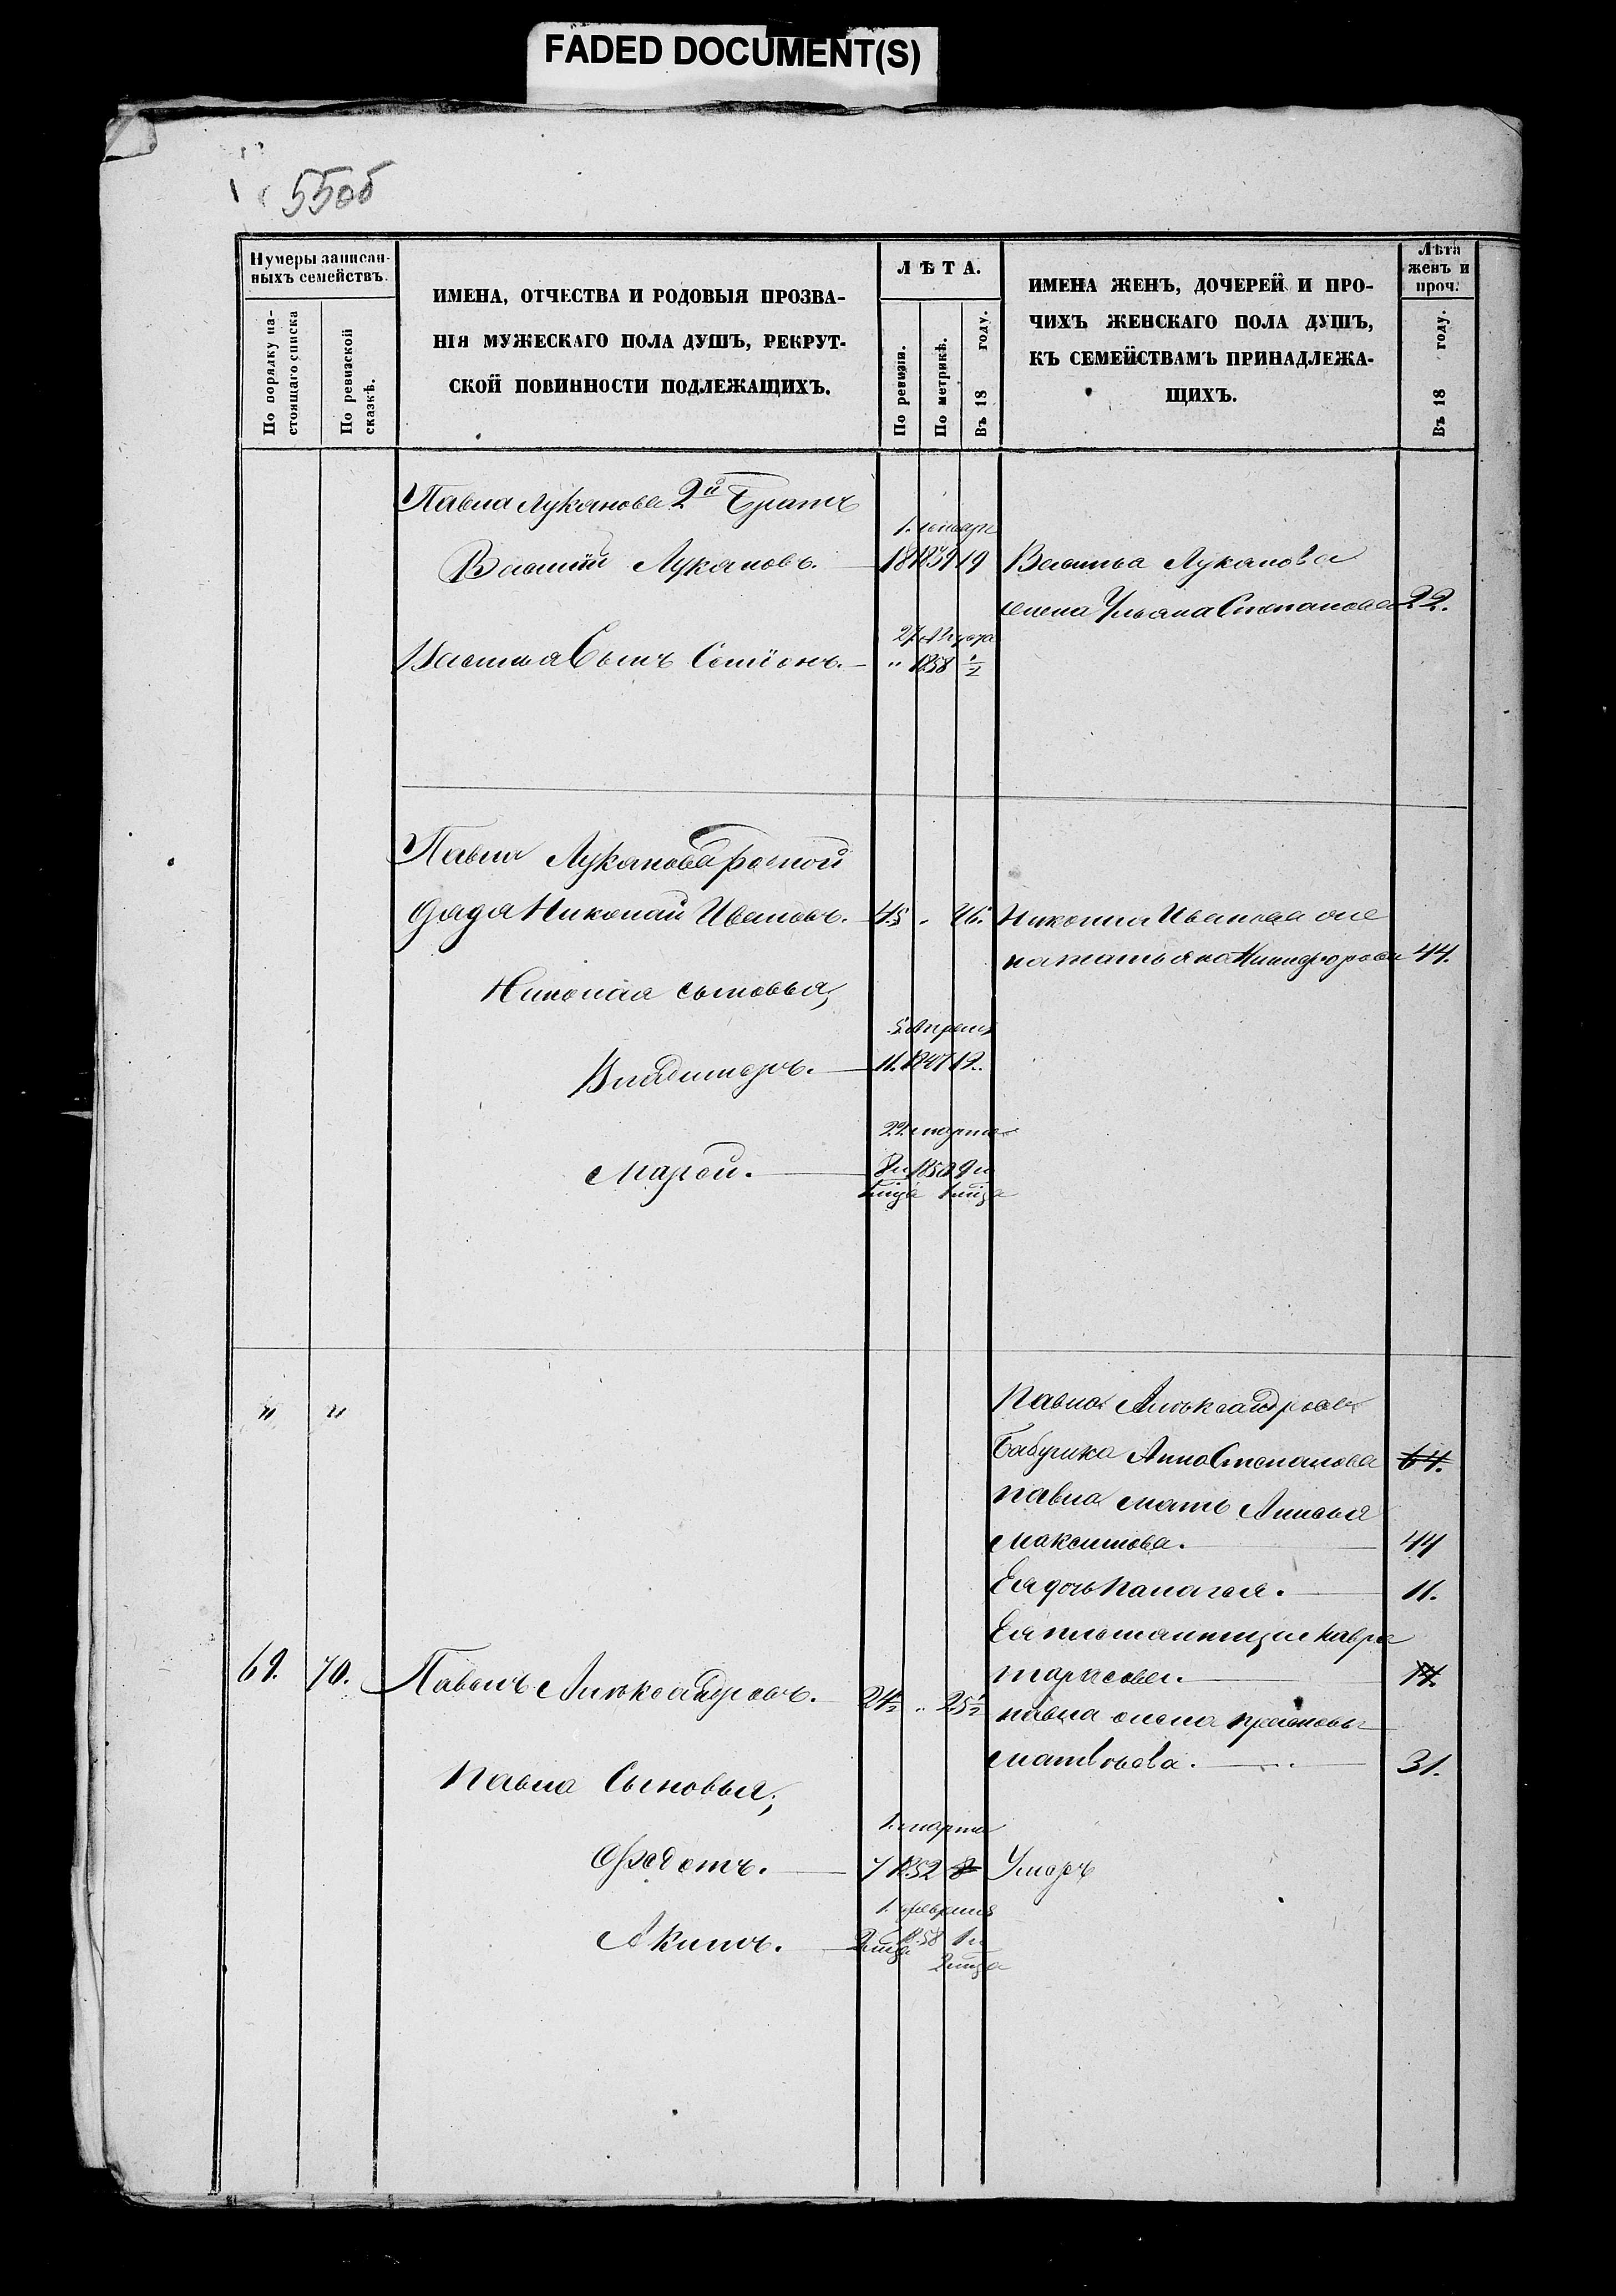 FADED DOCUMENT(S)
55об
Нумеры записан-
ныхъ семействъ.
По порядку на-
стоящаго списка
По ревизской
сказкѣ.
ИМЕНА, ОТЧЕСТВА И РОДОВЫЯ ПРОЗВА-
НІЯ МУЖЕСКАГО ПОЛА ДУШЪ, РЕКРУТ-
СКОЙ ПОВИННОСТИ ПОДЛЕЖАЩИХЪ.
ЛѢТА.
По ревизіи.
По метрикѣ.
Въ 18 году.
ИМЕНА ЖЕНЪ, ДОЧЕРЕЙ И ПРО-
ЧИХЪ ЖЕНСКАГО ПОЛА ДУШЪ,
КЪ СЕМЕЙСТВАМЪ ПРИНАДЛЕЖА-
ЩИХЪ.
Лѣта
женъ и
проч.
Въ 18 году.
Павла Луканова 2й Братъ
1. января
Василій Лукановъ. 18 1839 19 Василья Луканова
жена Ульяна Степанова 22.
27 Августа
Василья Сынъ Семіонъ. " 1858 1/2
Павла Луканова родной
Дядя Николай Ивановъ. 45 " 46. Николая Иванова же
на татьяна Никифорова 44.
Николая сыновья,
5. Апреля
Владимеръ. 11. 1847 12.
22 марта
Марей. 8 и 1850 9 и
1 мца 1 мца
" " Павла Александрова
Бабушка Анна Степанова 64.
павла мать Анисья
Максимова. 44
Ея дочь Палагея. 11.
Ея племянница Мавра
тарасова. 14.
69. 70. Павелъ Александровъ. 24 1/2 " 25 1/2
павла жена прасковья
матвѣева. 31.
Павла Сыновья;
1. марта
Федотъ. 7 1852 8 Умеръ
1. февраля
Акимъ. 2 мца 1858 1 и
2 мца